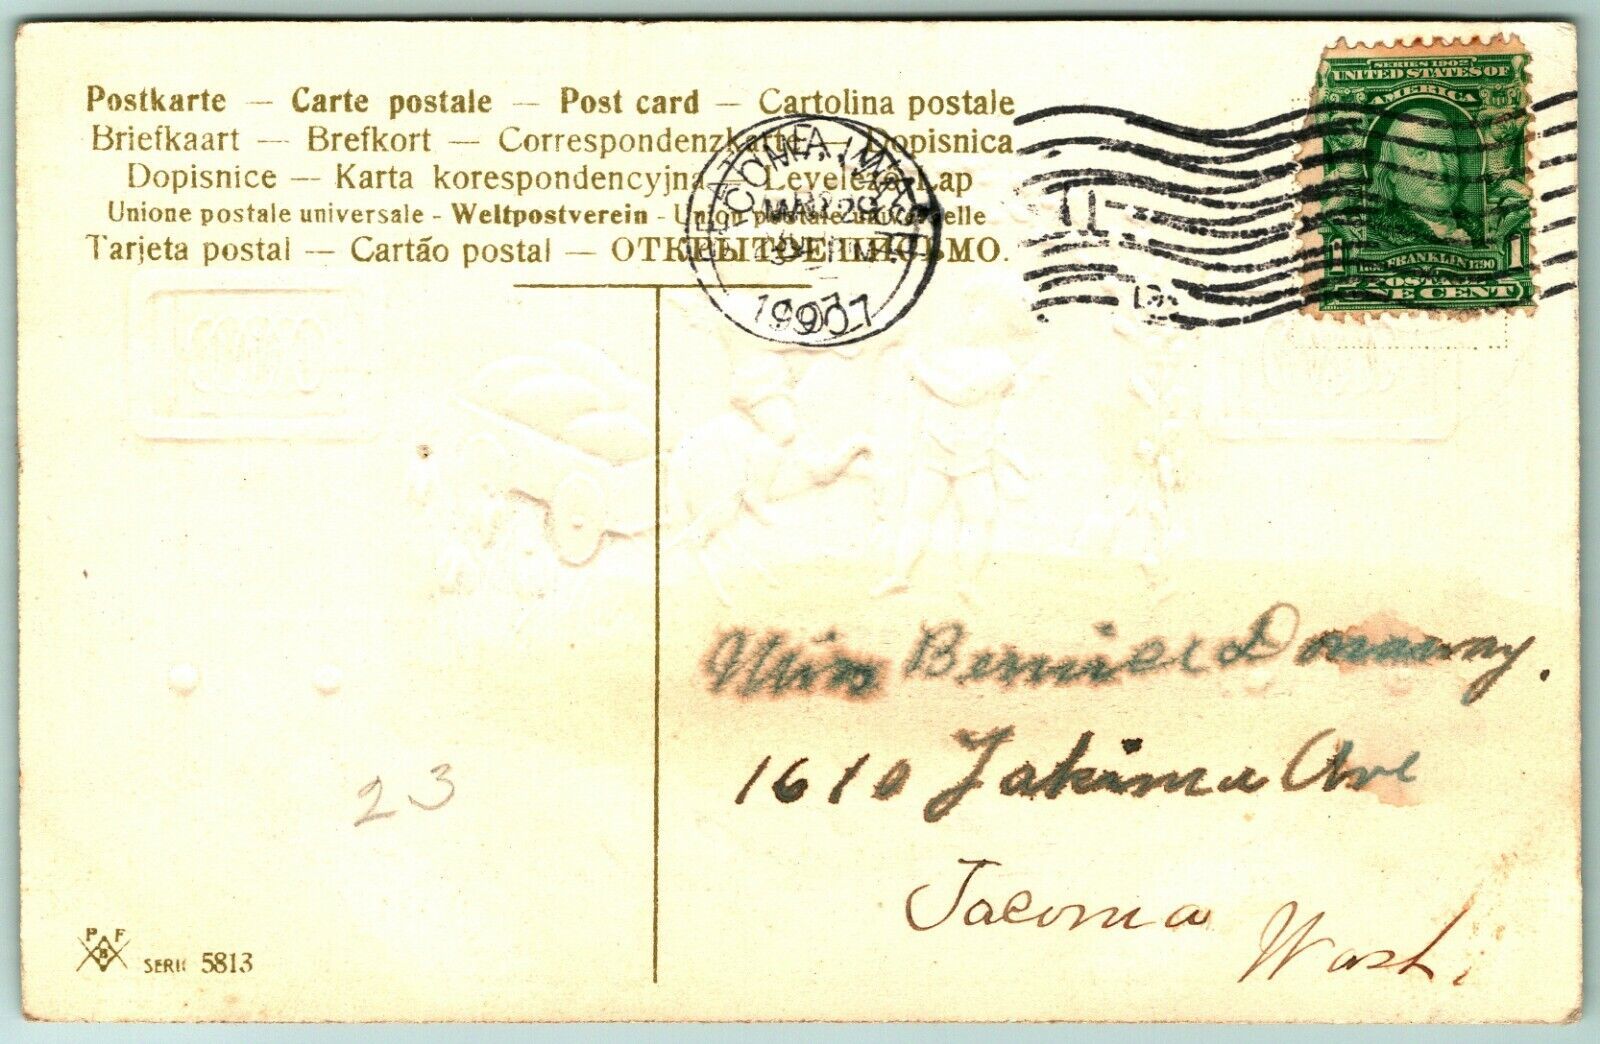 Postkarte — Carte postale — Post card — Cartolina postale
Briefkaart — Brefkort — Correspondenzkarte — Dopisnica
Dopisnice — Karta korespondencyjna — Levelező-Lap
Unione postale universale - Weltpostverein - Union postale universelle
Tarjeta postal — Cartão postal — ОТКРЫТОЕ ПИСЬМО.
TACOMA, WASH.
MAR 29
1907
SERIES 1902
UNITED STATES OF
AMERICA
FRANKLIN 1790
1 1
POSTAGE
ONE CENT
Miss Bernice
1610 Yakima Ave
Tacoma
Wash.
23
P F
B
SERIE 5813